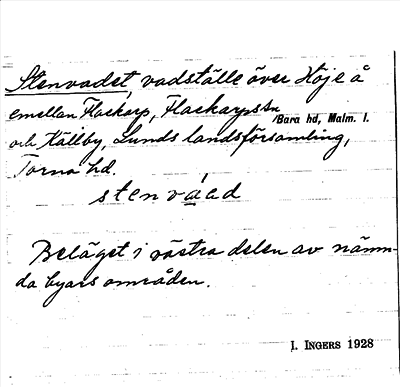 Stenvadet, vadställe över Höje å
emellan Flackarp, Flackarps sn
/Bara hd, Malm. l.
och Källby, Lunds landsförsamling,
Torna hd.
stenváad
Beläget i västra delen av nämn-
da byars områden.
I. INGERS 1928